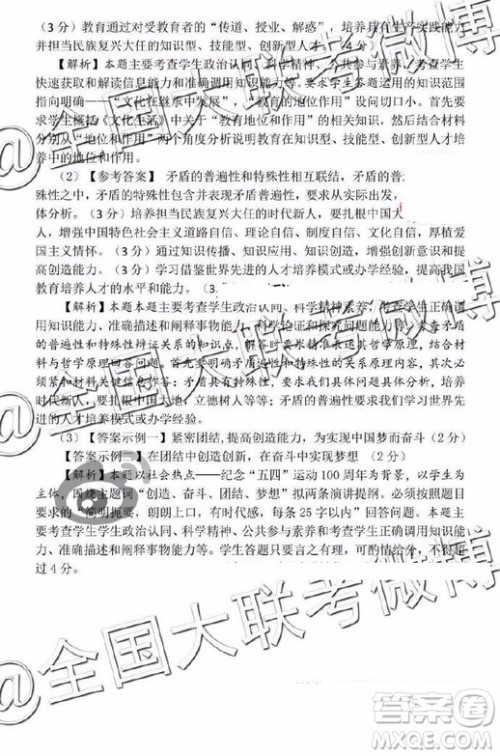 （3 分）教育通过对受教育者的“传道、授业、解惑”，培养具有生产实践能力
并担当民族复兴大任的知识型、技能型、创新型人才。（4 分）
【解析】本题主要考查学生政治认同、科学精神、公共参与素养，考查学生
快速获取和解读信息能力和准确调用知识能力。所需要运用的知识范围
指向明确——“文化在继承中发展”，“教育的地位作用”设问切口小。首先要
求学生概括《文化生活》中关于“教育地位和作用”的知识，然后结合材料
分别从“地位和作用”两个角度分析说明教育在知识型、技能型、创新型人才培
养中的地位和作用。
（2）【参考答案】 矛盾的普遍性和特殊性相互联结，矛盾的普
殊性之中，矛盾的特殊性包含并表现矛盾普遍性，要求从实际出发，
体分析。（3 分）培养担当民族复兴大任的时代新人，要扎根中国大
人，增强中国特色社会主义道路自信、理论自信、制度自信、文化自信，厚植爱
国主义情怀。（3 分）通过知识传播、知识应用、知识创造，增强创造意识和提
高创造能力。（3 分）学习借鉴世界先进的人才培养模式或办学经验，提高我国
教育培养人才的水平和能力。（3
【解析】本题本题主要考查学生政治认同、科学精神素养，考查学生正确调
用知识能力、准确描述和阐释事物能力、
的普遍性和特殊性关系的知识点，
材料与哲学原理回答问题。首先要写出矛盾的普遍性和特殊性的关系原理内容，
然后结合材料关键信息作答：矛盾具有特殊性，要求具体问题具体分析，培养
时代新人要扎根中国大地、立德树人等；矛盾具有普遍性，学习借鉴世界先进
的人才培养模式或办学经验。
（3）【答案示例一】紧密团结，提高创造能力，为实现中国梦而奋斗（2 分）
【答案示例二】在团结中创造创新，在奋斗中实现梦想（2 分）
【解析】本题以社会热点——纪念“五四”运动 100 周年为背景，以学生为
主体，围绕主题词“创造、奋斗、团结、梦想”拟两条演讲提纲。必须按照要求
的“简明扼要、朗朗上口，有时代感，每条 25 字以内”回答问题。本题主
要考查学生政治认同、科学精神、公共参与素养和考查学生正确调用知识能
力、准确描述和阐释事物能力等。学生答题只要符合题意，可酌情给分，不得超
过 4 分。
@全国大联考微博
@全国大联考微博
@全国大联考微博
答案卷
MXQE.COM